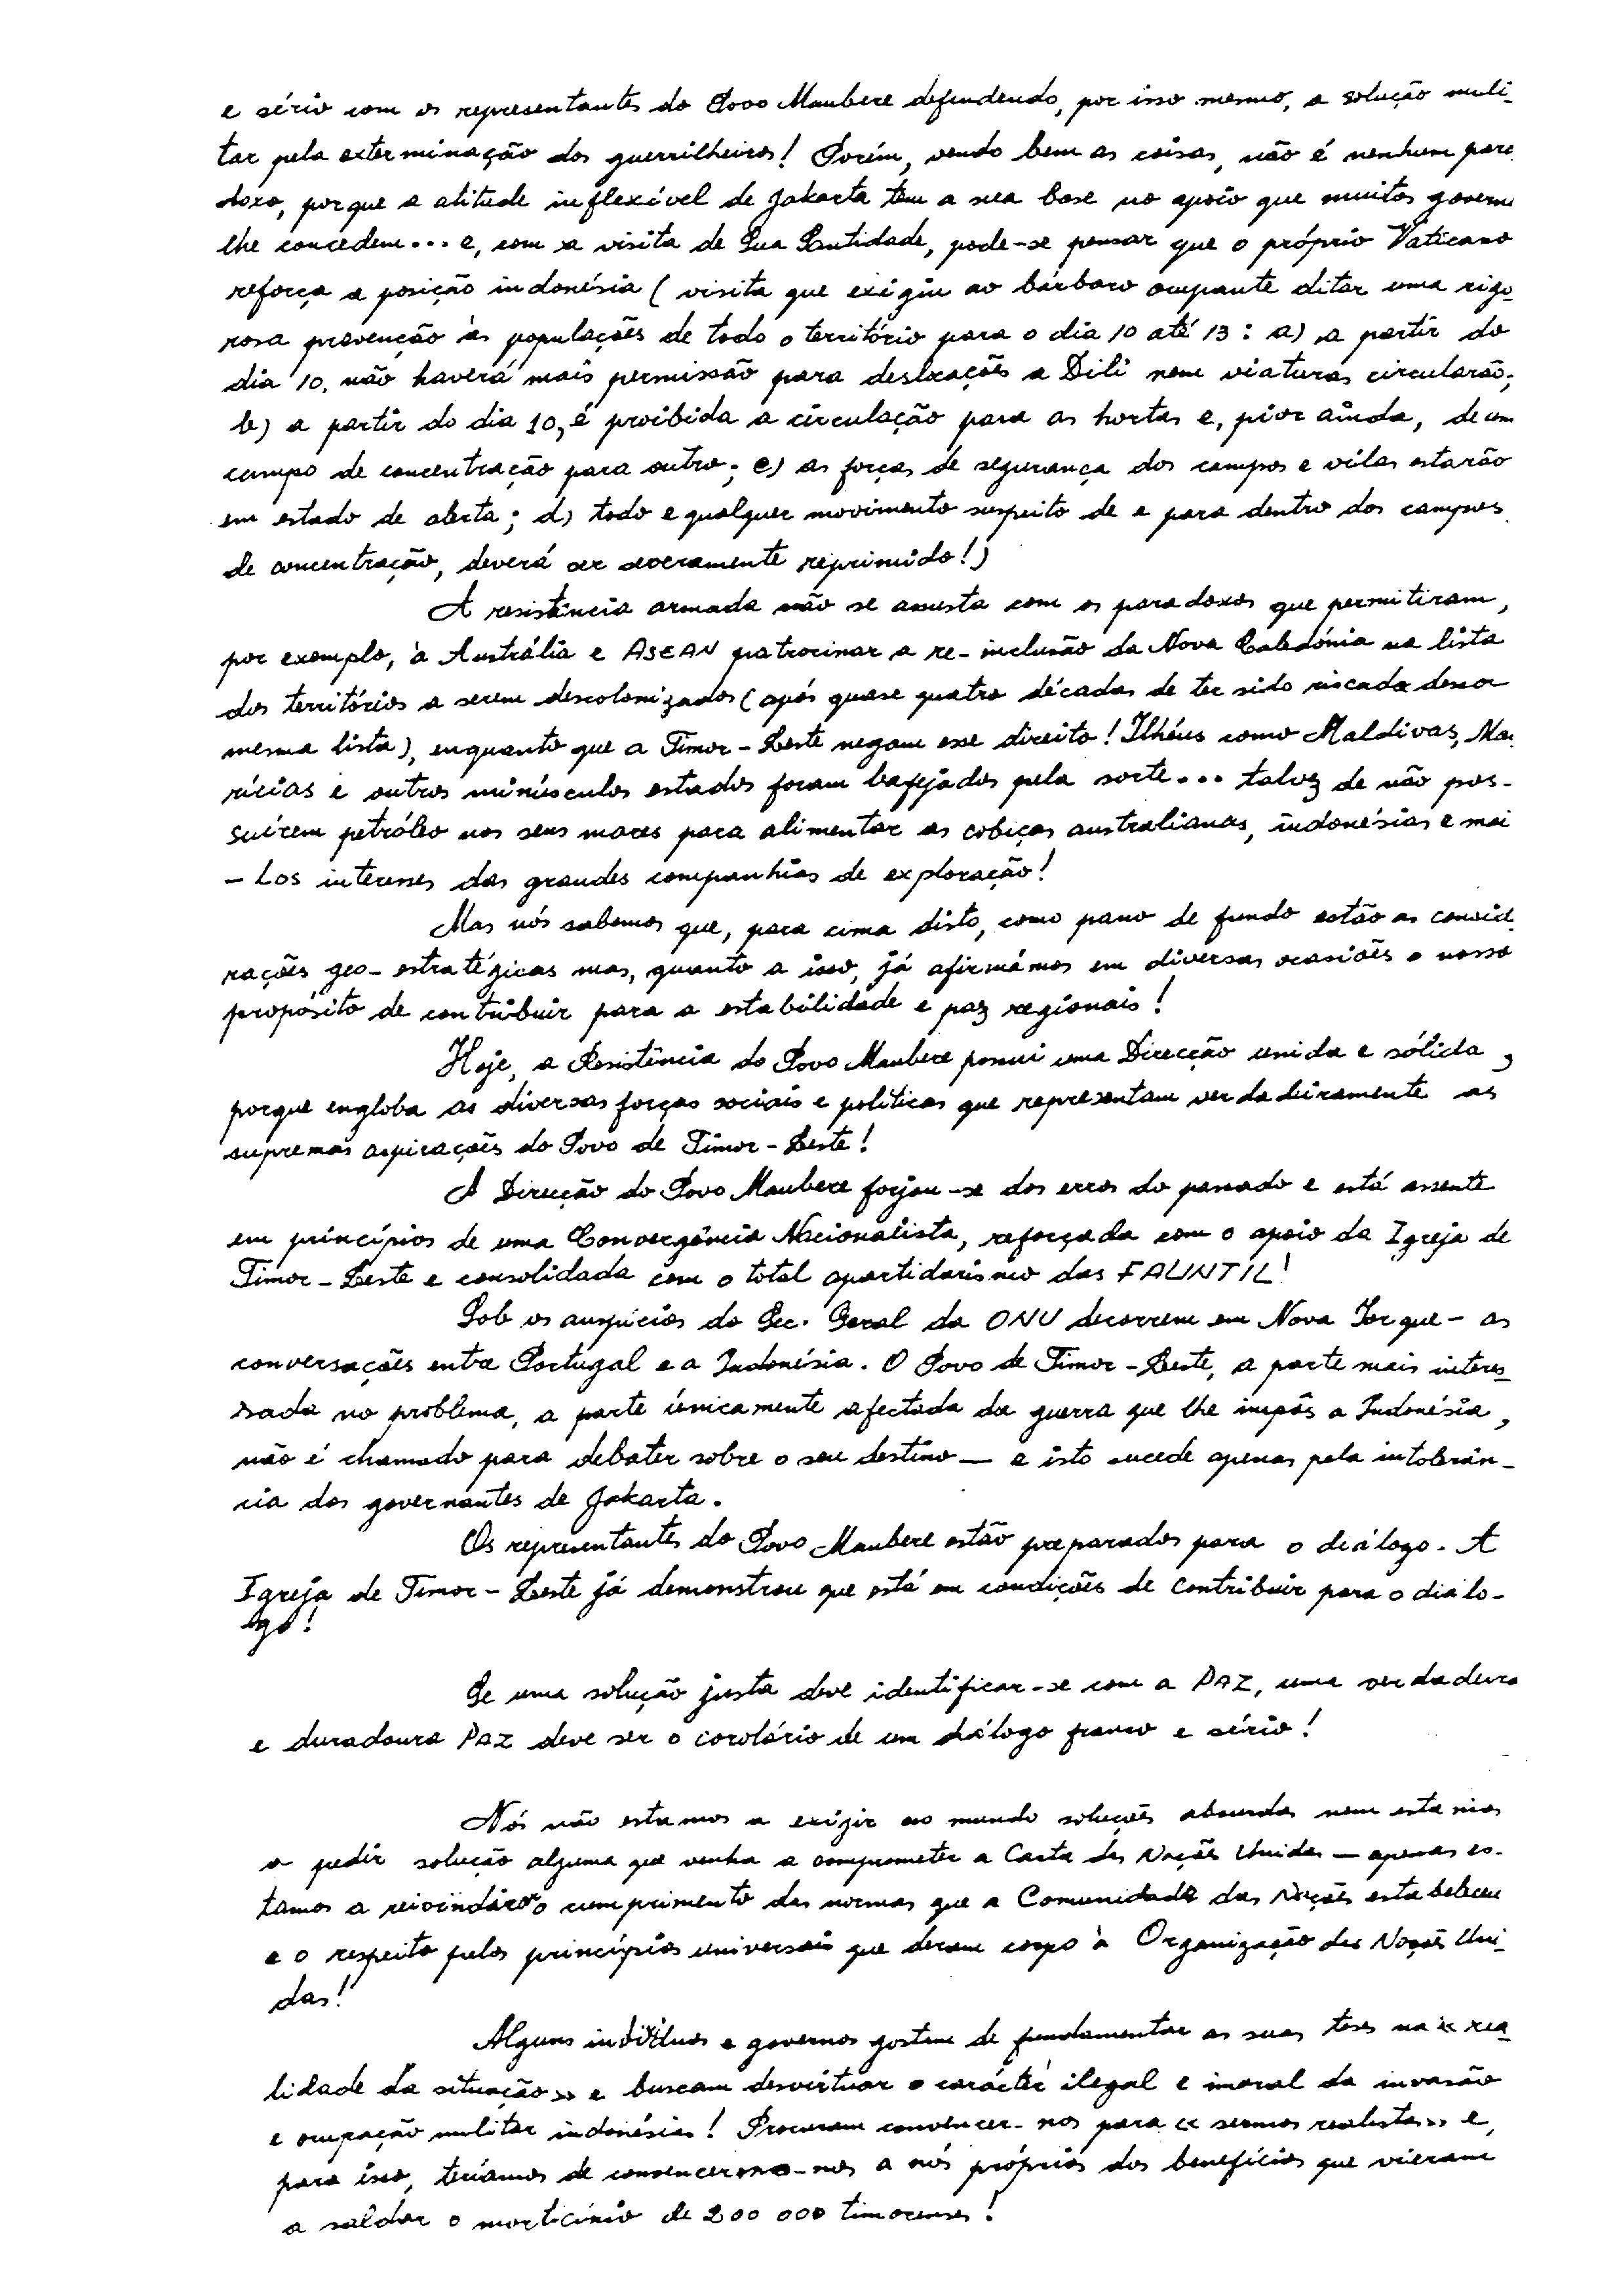 e sério com os representantes do Povo Maubere defendendo, por isso mesmo, a solução mili-
tar pela exterminação dos guerrilheiros! Porém, vendo bem as coisas, não é nenhum para
doxo, porque a atitude inflexível de Jakarta tem a sua base no apoio que muitos govern
lhe concedem... e, com a visita de Sua Santidade, pode-se pensar que o próprio Vaticano
reforça a posição indonésia (visita que exigiu ao bárbaro ocupante ditar uma rigo-
rosa prevenção às populações de todo o território para o dia 10 até 13: a) a partir do
dia 10, não haverá mais permissão para deslocações a Dili nem viaturas circularão;
b) a partir do dia 10, é proibida a circulação para as hortas e, pior ainda, de um
campo de concentração para outro; c) as forças de segurança dos campos e vilas estarão
em estado de alerta; d) todo e qualquer movimento suspeito de e para dentro dos campos
de concentração, deverá ser severamente reprimido!)
A resistência armada não se assusta com os paradoxos que permitiram,
por exemplo, à Austrália e ASEAN patrocinar a re-inclusão da Nova Caledónia na lista
dos territórios a serem descolonizados (após quase quatro décadas de ter sido riscada dessa
mesma lista), enquanto que a Timor-Leste negam esse direito! Ilhéus como Maldivas, Mau
rícias e outros minúsculos estados foram bafejados pela sorte... talvez de não pos-
suírem petróleo nos seus mares para alimentar as cobiças australianas, indonésias e mai
- Los interesses das grandes companhias de exploração!
Mas nós sabemos que, para cima disto, como pano de fundo estão as consid
rações geo-estratégicas mas, quanto a isso, já afirmámos em diversas ocasiões o nosso
propósito de contribuir para a estabilidade e paz regionais!
Hoje, a Resistência do Povo Maubere possui uma Direcção unida e sólida,
porque engloba as diversas forças sociais e políticas que representam verdadeiramente as
supremas aspirações do Povo de Timor-Leste!
A Direcção do Povo Maubere forjou-se dos erros do passado e está assente
em princípios de uma Convergência Nacionalista, reforçada com o apoio da Igreja de
Timor-Leste e consolidada com o total apartidarismo das FALINTIL!
Sob os auspícios do Sec. Geral da ONU decorrem em Nova Iorque - as
conversações entre Portugal e a Indonésia. O Povo de Timor-Leste, a parte mais interes-
sada no problema, a parte únicamente afectada da guerra que lhe impôs a Indonésia,
não é chamado para debater sobre o seu destino — e isto sucede apenas pela intolerân-
cia dos governantes de Jakarta.
Os representantes do Povo Maubere estão preparados para o diálogo. A
Igreja de Timor-Leste já demonstrou que está em condições de contribuir para o diálo-
go!
Se uma solução justa deve identificar-se com a PAZ, uma verdadeira
e duradoura PAZ deve ser o corolário de um diálogo franco e sério!
Nós não estamos a exigir ao mundo soluções absurdas nem estamos
a pedir solução alguma que venha a comprometer a Carta das Nações Unidas — apenas es-
tamos a reivindicar o cumprimento das normas que a Comunidade das Nações estabeleceu
e o respeito pelos princípios universais que deram corpo à Organização das Nações Uni-
das!
Alguns indivíduos e governos gostam de fundamentar as suas teses na « rea-
lidade da situação» e buscam desvirtuar o carácter ilegal e imoral da invasão
e ocupação militar indonésia! Procuram convencer-nos para « sermos realistas» e,
para isso, teríamos de convencermo-nos a nós próprios dos benefícios que vieram
a saldar o morticínio de 200 000 timorenses!